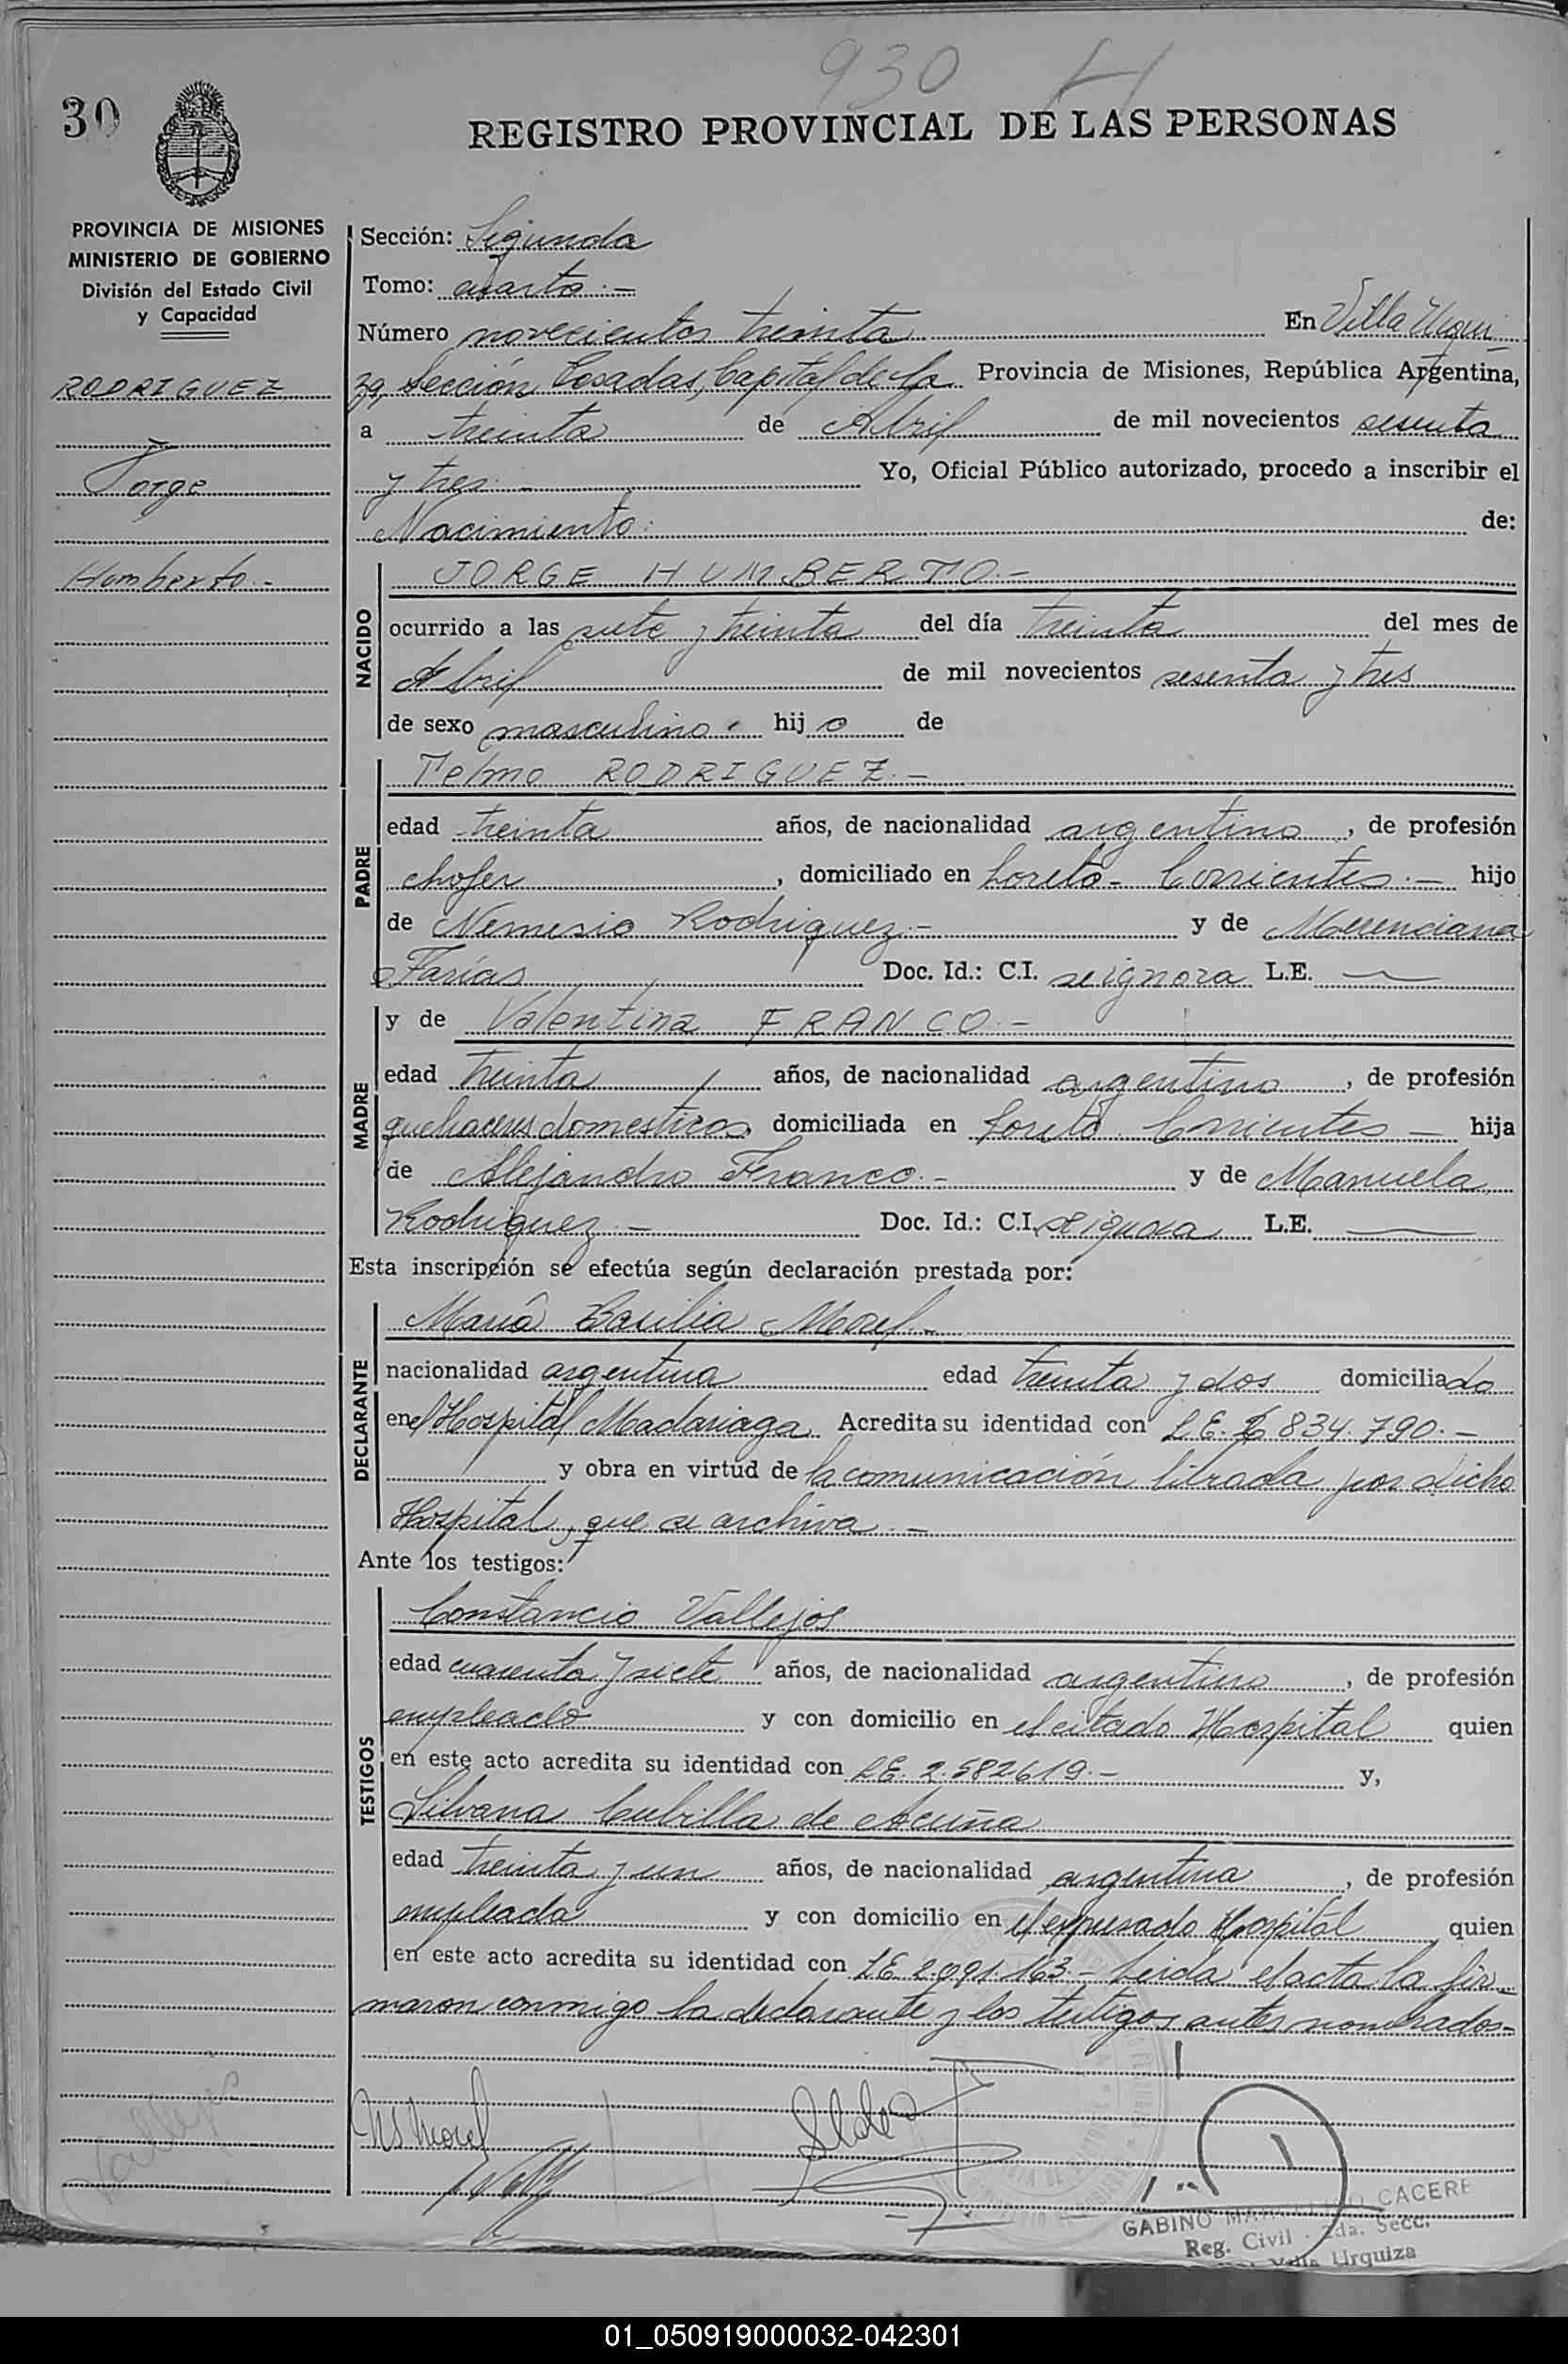 930 H
30
REGISTRO PROVINCIAL DE LAS PERSONAS
PROVINCIA DE MISIONES
MINISTERIO DE GOBIERNO
División del Estado Civil
y Capacidad
RODRIGUEZ
Jorge
Humberto.-
Sección: Segunda
Tomo: cuarto.-
Número novecientos treinta En Villa Urqui-
za, Sección Posadas, Capital de la Provincia de Misiones, República Argentina,
a treinta de Abril de mil novecientos sesenta
y tres.- Yo, Oficial Público autorizado, procedo a inscribir el
Nacimiento: de:
NACIDO
JORGE HUMBERTO.-
ocurrido a las siete y treinta del día treinta del mes de
Abril de mil novecientos sesenta y tres
de sexo masculino. hijo de
PADRE
Telmo RODRIGUEZ.-
edad treinta años, de nacionalidad argentino, de profesión
chofer, domiciliado en Loreto- Corrientes.- hijo
de Nemesio Rodriguez.- y de Merenciana
Farías Doc. Id.: C.I. se ignora L.E. —
MADRE
y de Valentina FRANCO.-
edad treinta años, de nacionalidad argentina, de profesión
quehaceres domesticos, domiciliada en Loreto. Corrientes — hija
de Alejandro Franco.- y de Manuela
Rodriguez.- Doc. Id.: C.I. se ignora L.E. —
Esta inscripción se efectúa según declaración prestada por:
DECLARANTE
María Morel-
nacionalidad argentina edad treinta y dos domiciliado
en el Hospital Madariaga. Acredita su identidad con L.E. 834.790.-
y obra en virtud de la comunicación librada por dicho
Hospital, que se archiva.-
Ante los testigos:
TESTIGOS
Constancio Vallejos
edad cuarenta y siete años, de nacionalidad argentino, de profesión
empleado y con domicilio en el citado Hospital quien
en este acto acredita su identidad con L.E. 2.582619.- y,
Silvana Cubilla de Acuña
edad treinta y un años, de nacionalidad argentina, de profesión
empleada y con domicilio en el expresado Hospital quien
en este acto acredita su identidad con L.E. 2.091.163.- Leida el acta la fir-
maron conmigo la declarante y los testigos antes nombrados-
GABINO CACERE
Reg. Civil - 2da. Secc.
Villa Urquiza
01_050919000032-042301